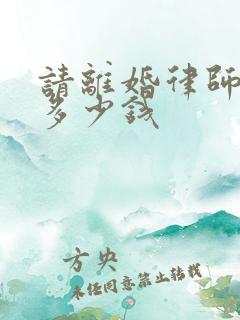 請離婚律師
多少錢
方央
未任同意禁止转载